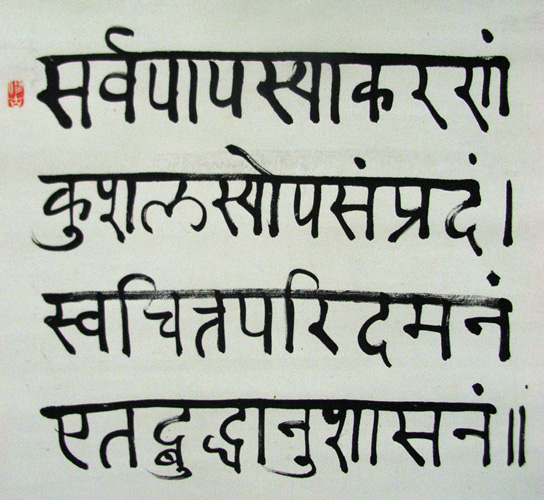 सर्वपापस्याकरणं
कुशलस्योपसंप्रदं।
स्वचित्तपरिदमनं
एतद्बुद्धानुशासनं॥